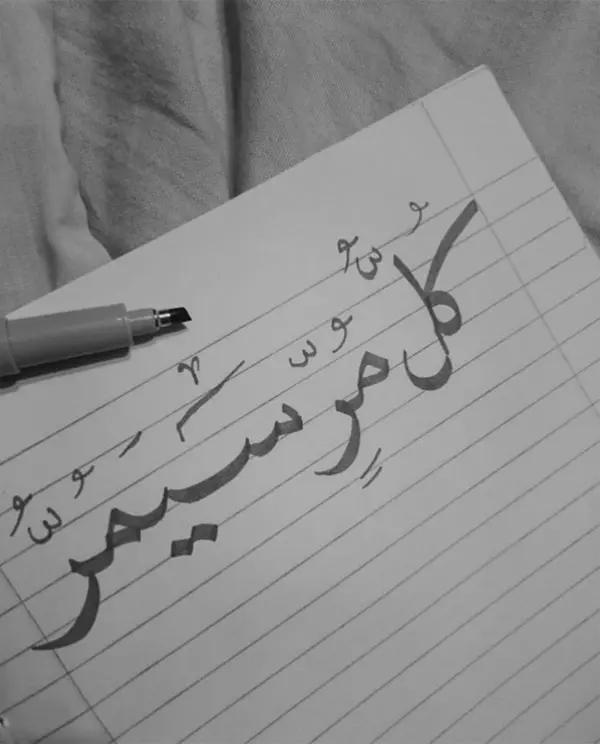 كُلُّ مُرٍّ سَيَمُرُّ